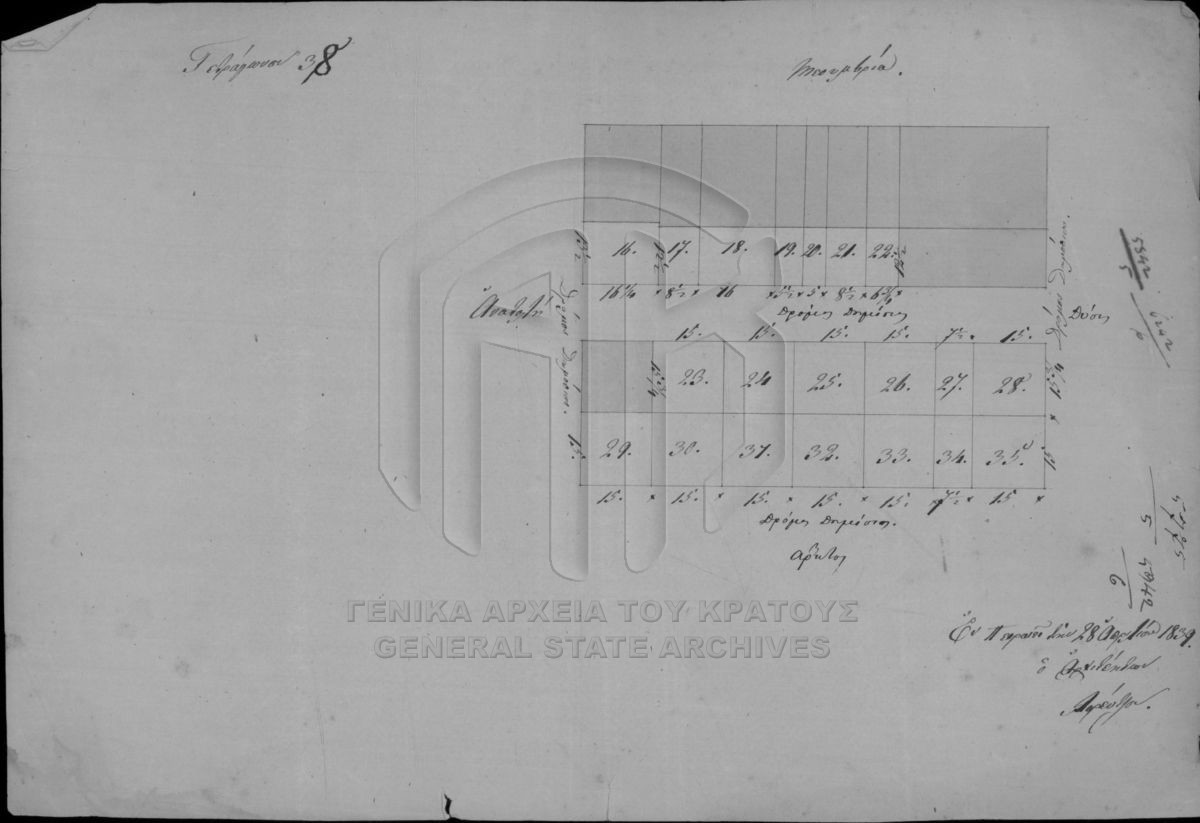 Τετράγωνον 38
Μεσυμβρία.
13½ 16. 12½ 17. 18. 19. 20. 21. 22. 12½
16¼ × 8½ × 16 × 5½ × 5 × 8½ × 6¾ ×
Ἀνατολή
Δρόμος Δημόσιος.
Δρόμος Δημόσιος
Δρόμος Δημόσιος.
Δύσις
15. 15. 15. 15. 7½ × 15.
15¾ 23. 24 25. 26. 27. 28. × 15¾
15. 29. 30. 31. 32. 33. 34. 35. 15
15. × 15. × 15. × 15. × 15. × 7½ × 15. ×
Δρόμος Δημόσιος.
Ἄρκτος
ΓΕΝΙΚΑ ΑΡΧΕΙΑ ΤΟΥ ΚΡΑΤΟΥΣ
GENERAL STATE ARCHIVES
Ἐν Πειραιεῖ τὴν 28 Ἀπριλίου 1839.
ὁ Ἀρχιτέκτων